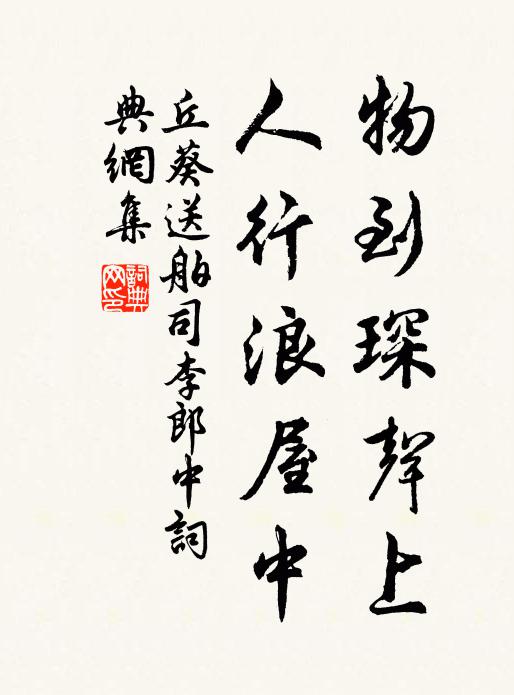 物到琛聲上
人行浪屋中
丘葵送舶司李郎中詞
典網集
詞典網印